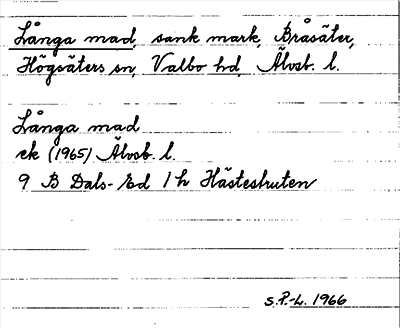 Långa mad, sank mark, Bråsäter,
Högsäters sn, Valbo hd, Älvsb. l.
Långa mad
ek (1965) Älvsb. l.
9 B Dals-Ed 1 h Hästesluten
S.P.-L. 1966